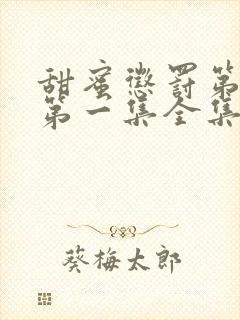 甜蜜惩罚第
第一集全集
葵梅太郎